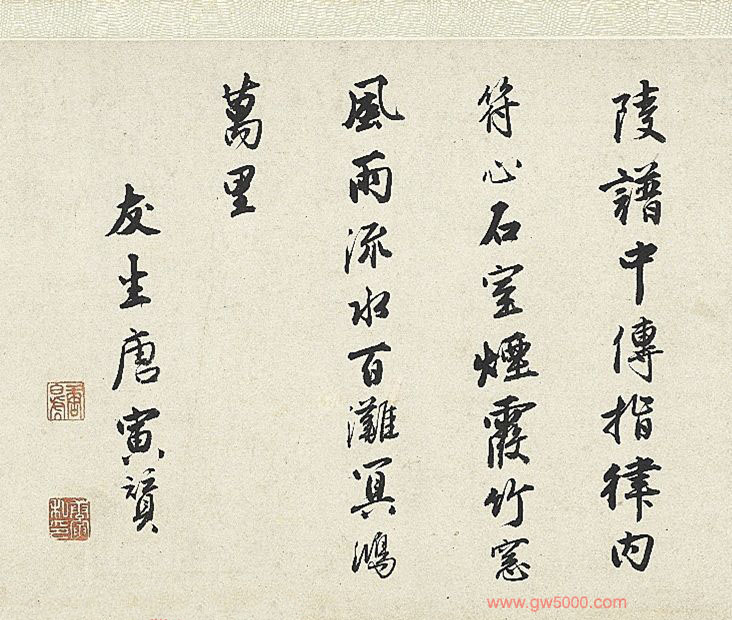 陵譜中傳指律内
符心石室煙霞竹窓
風雨流水百灘冥鴻
萬里
友生唐寅贊
www.gw5000.com